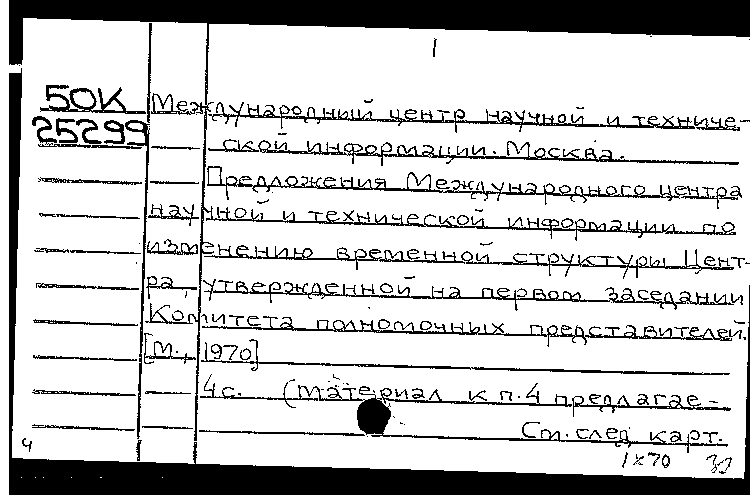 1
50К Международный центр научной и техниче-
25299 ской информации. Москва.
Предложения Международного центра
научной и технической информации по
изменению временной структуры Цент-
ра, утвержденной на первом заседании
Комитета полномочных представителей.
[М., 1970]
4 с. (Материал к п. 4 предлагае-
См. след. карт.
4 1х70 30